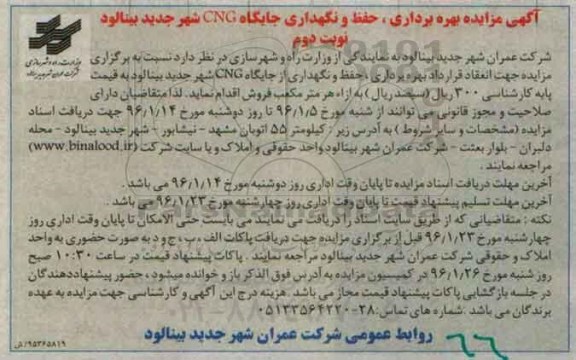 آگهی مزایده بهره برداری ، حفظ و نگهداری جایگاه CNG شهر جدید بینالود
نوبت دوم
وزارت راه و شهرسازی
شرکت عمران شهر جدید بینالود
شرکت عمران شهر جدید بینالود به نمایندگی از وزارت راه و شهرسازی در نظر دارد نسبت به برگزاری
مزایده جهت انعقاد قرارداد بهره برداری ، حفظ و نگهداری از جایگاه CNG شهر جدید بینالود به قیمت
پایه کارشناسی ۳۰۰ ریال (سیصد ریال) به ازاء هر متر مکعب فروش اقدام نماید. لذا متقاضیان دارای
صلاحیت و مجوز قانونی می توانند از شنبه مورخ ۹۶/۱/۵ تا روز دوشنبه مورخ ۹۶/۱/۱۴ جهت دریافت اسناد
مزایده (مشخصات و سایر شروط) به آدرس زیر : کیلومتر ۵۵ اتوبان مشهد - نیشابور - شهر جدید بینالود - محله
دلبران - بلوار بعثت - شرکت عمران شهر بینالود واحد حقوقی و املاک و یا سایت شرکت (www.binalood.ir)
مراجعه نمایند .
آخرین مهلت دریافت اسناد مزایده تا پایان وقت اداری روز دوشنبه مورخ ۹۶/۱/۱۴ می باشد .
آخرین مهلت تسلیم پیشنهاد قیمت تا پایان وقت اداری روز چهارشنبه مورخ ۹۶/۱/۲۳ می باشد .
نکته : متقاضیانی که از طریق سایت اسناد را دریافت می نمایند می بایست حتی الامکان تا پایان وقت اداری روز
چهارشنبه مورخ ۹۶/۱/۲۳ قبل از برگزاری مزایده جهت دریافت پاکات الف ، ب ، ج و د به صورت حضوری به واحد
املاک و حقوقی شرکت عمران شهر جدید بینالود مراجعه نمایند . پاکات پیشنهاد قیمت در ساعت ۱۰:۳۰ صبح
روز شنبه مورخ ۹۶/۱/۲۶ در کمیسیون مزایده به آدرس فوق الذکر باز و خوانده میشود ، حضور پیشنهاددهندگان
در جلسه بازگشایی پاکات پیشنهاد قیمت مجاز می باشد . هزینه درج این آگهی و کارشناسی جهت مزایده به عهده
برندگان می باشد .شماره های تماس:۲۸-۰۵۱۳۳۵۶۴۲۲۰
روابط عمومی شرکت عمران شهر جدید بینالود
۶۶
۹۵۳۶۵۸۱۹/ش